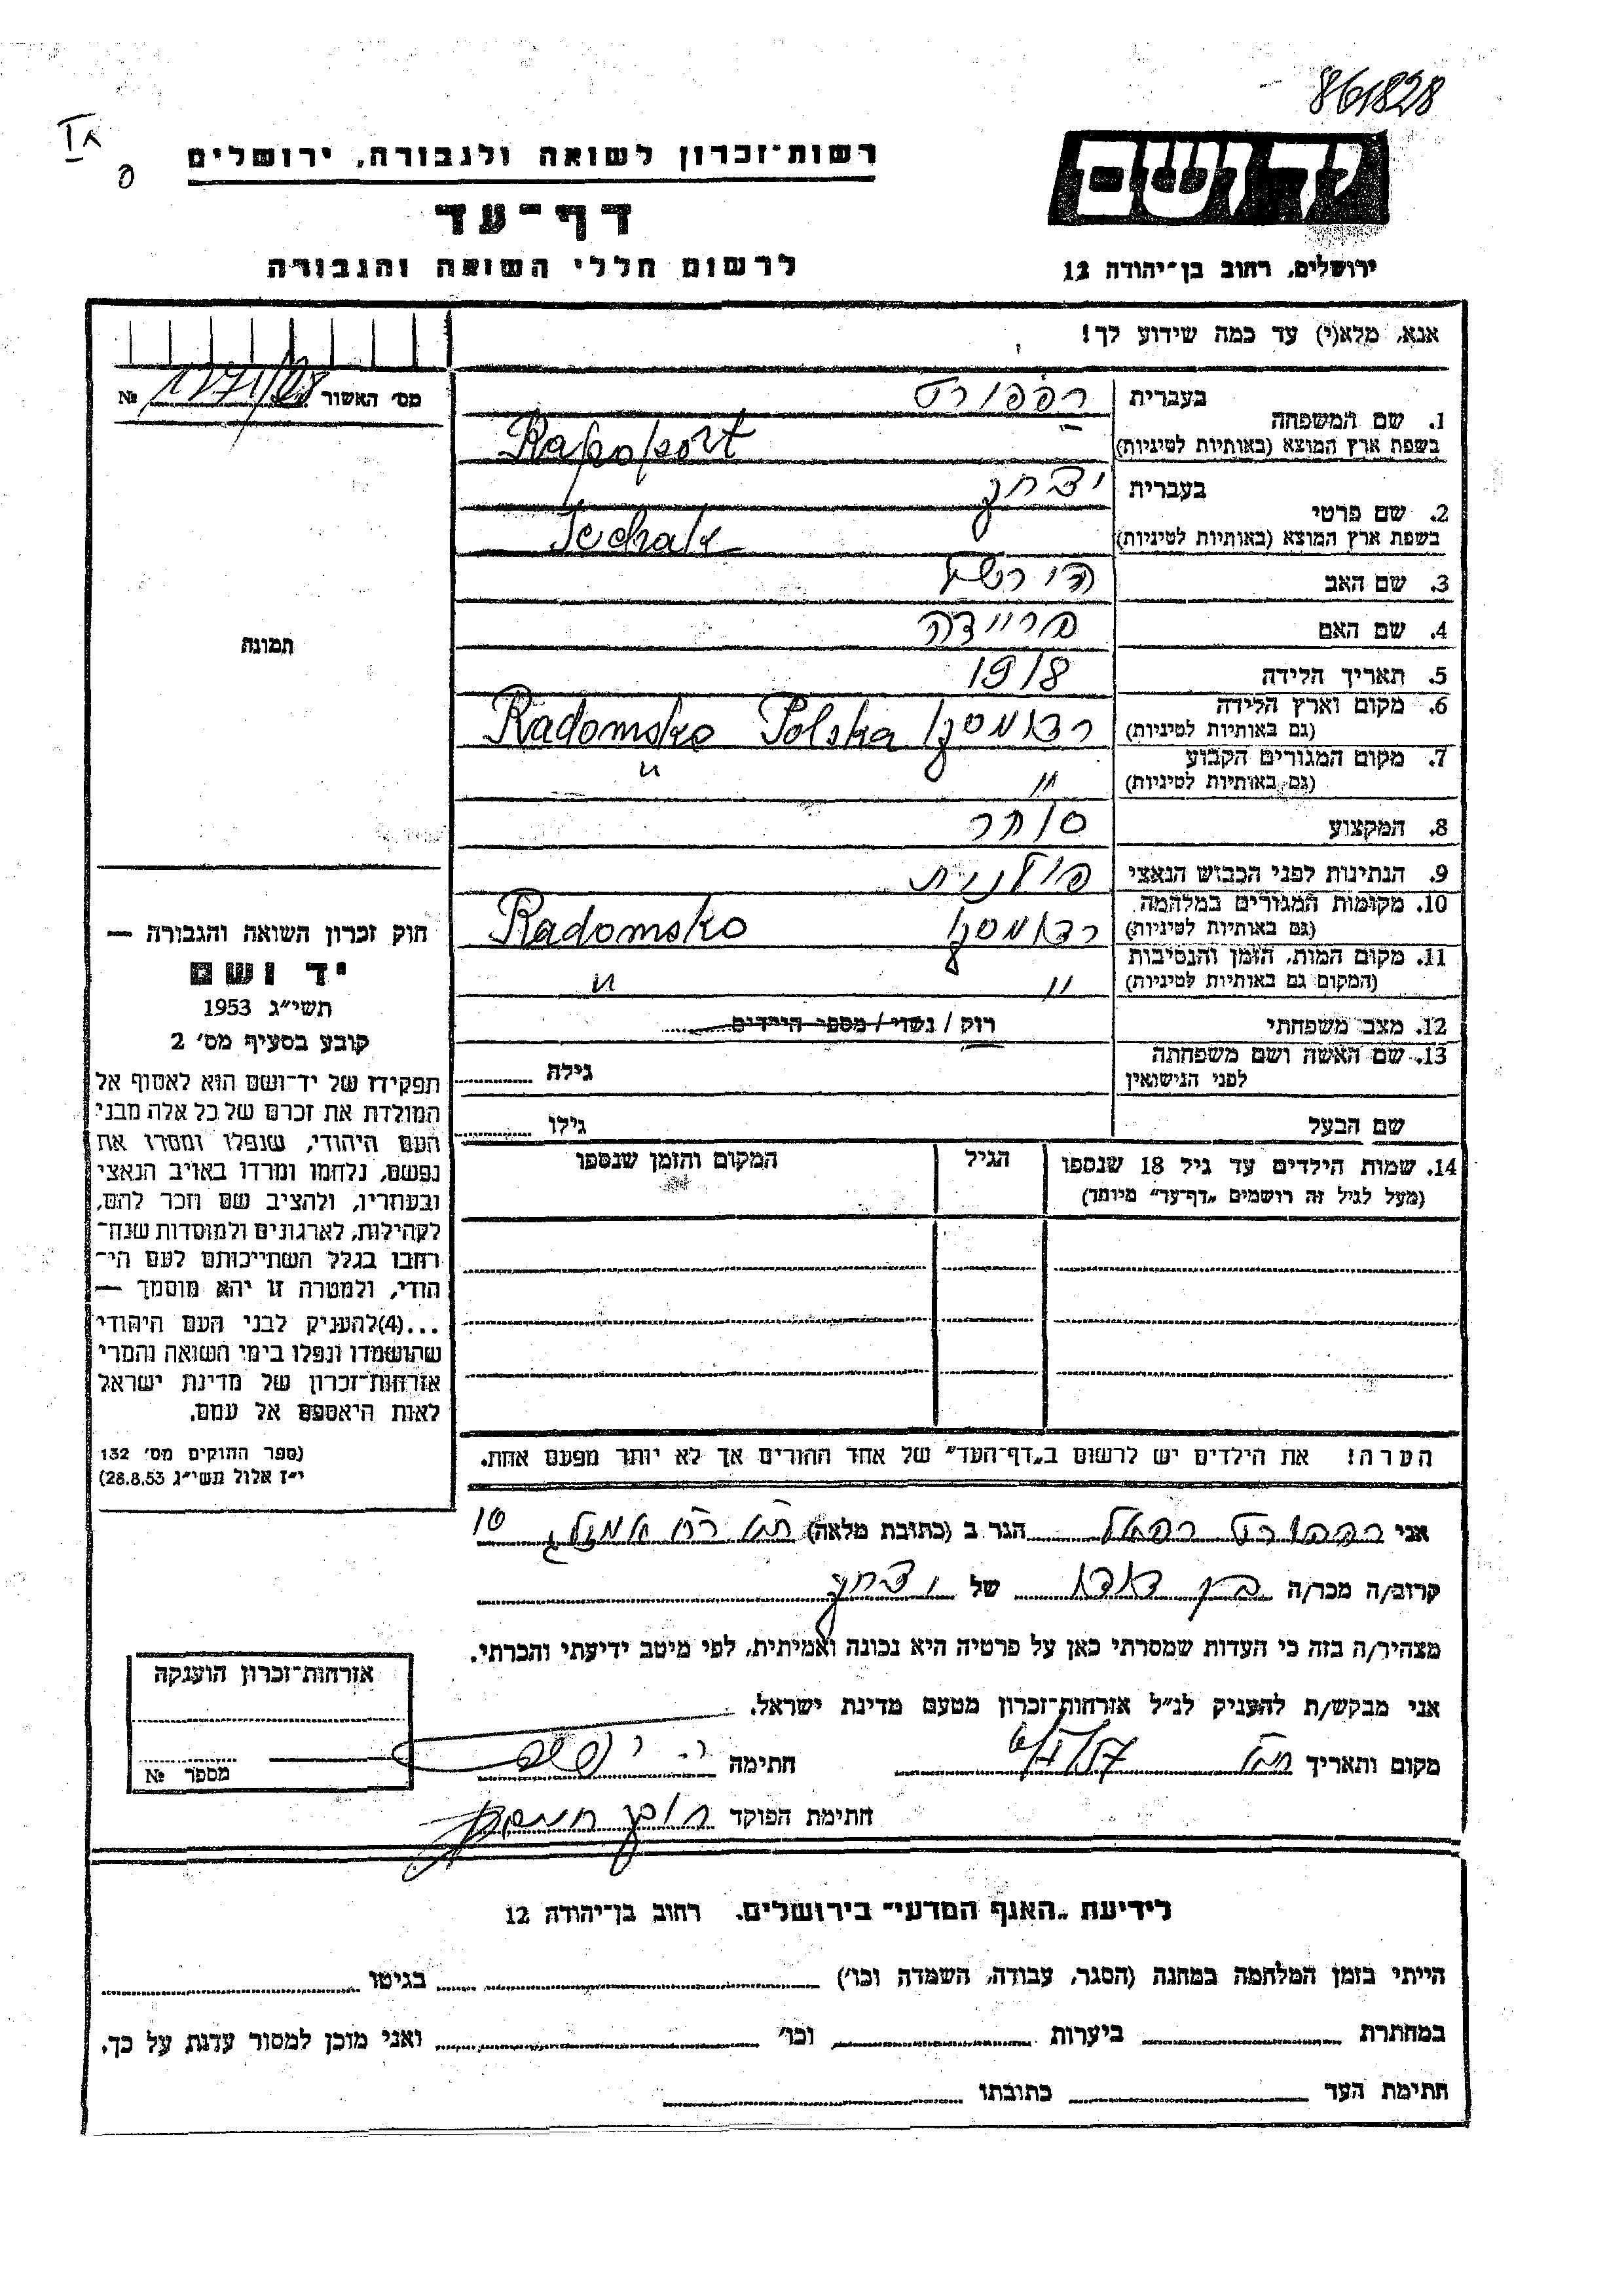 861828
יד ושם
רשות-זכרון לשואה ולגבורה, ירושלים
דף-עד
לרשום חללי השואה והגבורה
ירושלים, רחוב בן-יהודה 12
אנא, מלא(י) עד כמה שידוע לך!
מס' האשור №
1. שם המשפחה
בעברית רפפורט
בשפת ארץ המוצא (באותיות לטיניות) Rapoport
2. שם פרטי
בעברית יצחק
בשפת ארץ המוצא (באותיות לטיניות)
3. שם האב
4. שם האם פריידה
5. תאריך הלידה 1918
6. מקום וארץ הלידה
(גם באותיות לטיניות) רדומסקו Radomsko Polska
7. מקום המגורים הקבוע
(גם באותיות לטיניות) " "
8. המקצוע סוחר
9. הנתינות לפני הכבוש הנאצי פולנית
10. מקומות המגורים במלחמה
(גם באותיות לטיניות) רדומסקו Radomsko
11. מקום המות, הזמן והנסיבות
(המקום גם באותיות לטיניות) " "
12. מצב משפחתי רווק / נשוי / מספר הילדים
13. שם האשה ושם משפחתה
לפני הנישואין גילה
שם הבעל גילו
14. שמות הילדים עד גיל 18 שנספו
(מעל לגיל זה רושמים „דף-עד" מיוחד)
הגיל
המקום והזמן שנספו
תמונה
חוק זכרון השואה והגבורה —
יד ושם
תשי"ג 1953
קובע בסעיף מס' 2
תפקידו של יד-ושם הוא לאסוף אל
המולדת את זכרם של כל אלה מבני
העם היהודי, שנפלו ומסרו את
נפשם, נלחמו ומרדו באויב הנאצי
ובעוזריו, ולהציב שם וזכר להם,
לקהילות, לארגונים ולמוסדות שנח־
רחבו בגלל השתייכותם לעם הי־
הודי, ולמטרה זו יהא מוסמך —
...(4)להעניק לבני העם היהודי
שהושמדו ונפלו בימי השואה והמרי
אזרחות-זכרון של מדינת ישראל
לאות היאספם אל עמם.
(ספר החוקים מס' 132
י"ז אלול תשי"ג 28.8.53)
הערה! את הילדים יש לרשום ב„דף-העד" של אחד ההורים אך לא יותר מפעם אחת.
אני רפפורט הגר ב (כתובת מלאה) 10
קרוב/ה מכר/ה בן דוד של יצחק
מצהיר/ה בזה כי העדות שמסרתי כאן על פרטיה היא נכונה ואמיתית, לפי מיטב ידיעתי והכרתי.
אני מבקש/ת להעניק לנ"ל אזרחות-זכרון מטעם מדינת ישראל.
מקום ותאריך חתימה
חתימת הפוקד
אזרחות-זכרון הוענקה
מספר №
לידיעת „האגף המדעי" בירושלים. רחוב בן-יהודה 12
הייתי בזמן המלחמה במחנה (הסגר, עבודה, השמדה וכו') בגיטו
במחתרת ביערות וכו' ואני מוכן למסור עדות על כך.
חתימת העד כתובתו